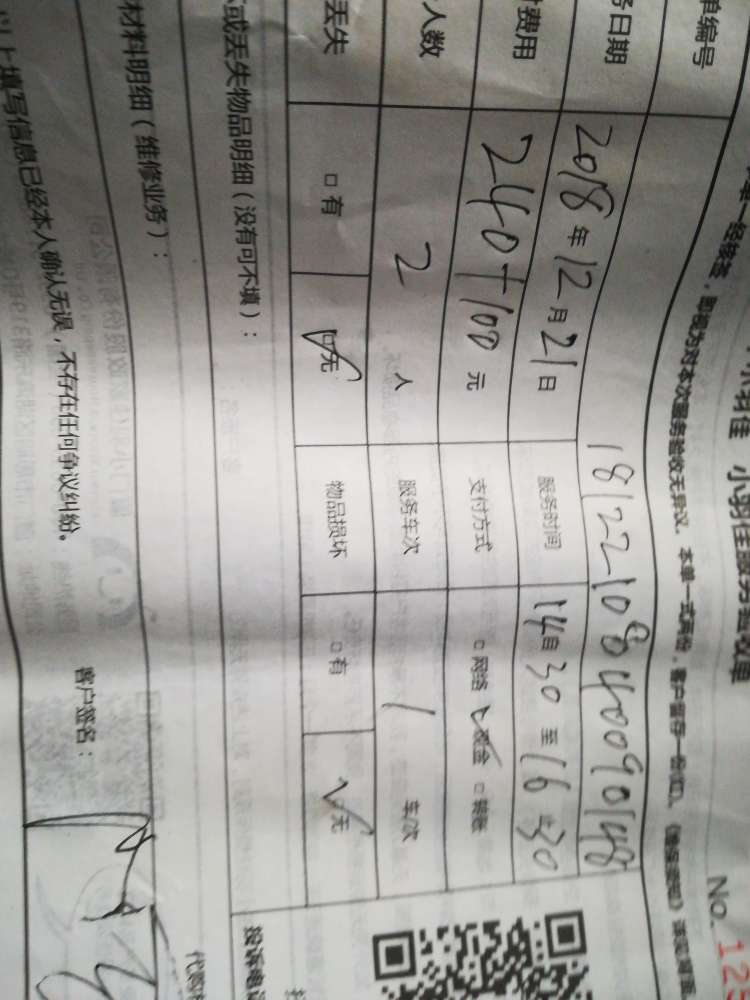 小羽佳 小羽佳服务验收单
单一经接签，即视为对本次服务验收无异议。本单一式两份，客户留存一份(红)。
No.
单编号 1812210840090148
务日期 2018年12月21日 服务时间 14时30至16时30
费用 240+100元 支付方式 □网络 ☑现金 □转账
人数 2人 服务车次 1车/次
丢失 □有 ☑无 物品损坏 □有 ☑无
或丢失物品明细（没有可不填）：
材料明细（维修业务）：
以上填写信息已经本人确认无误，不存在任何争议纠纷。 客户签名：
投诉电